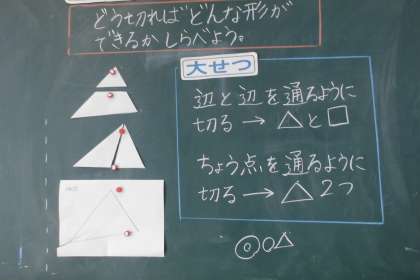 どう切ればどんな形が
できるかしらべよう。
大せつ
辺と辺を通るように
切る → △と□
ちょう点を通るように
切る → △2つ
◎○△